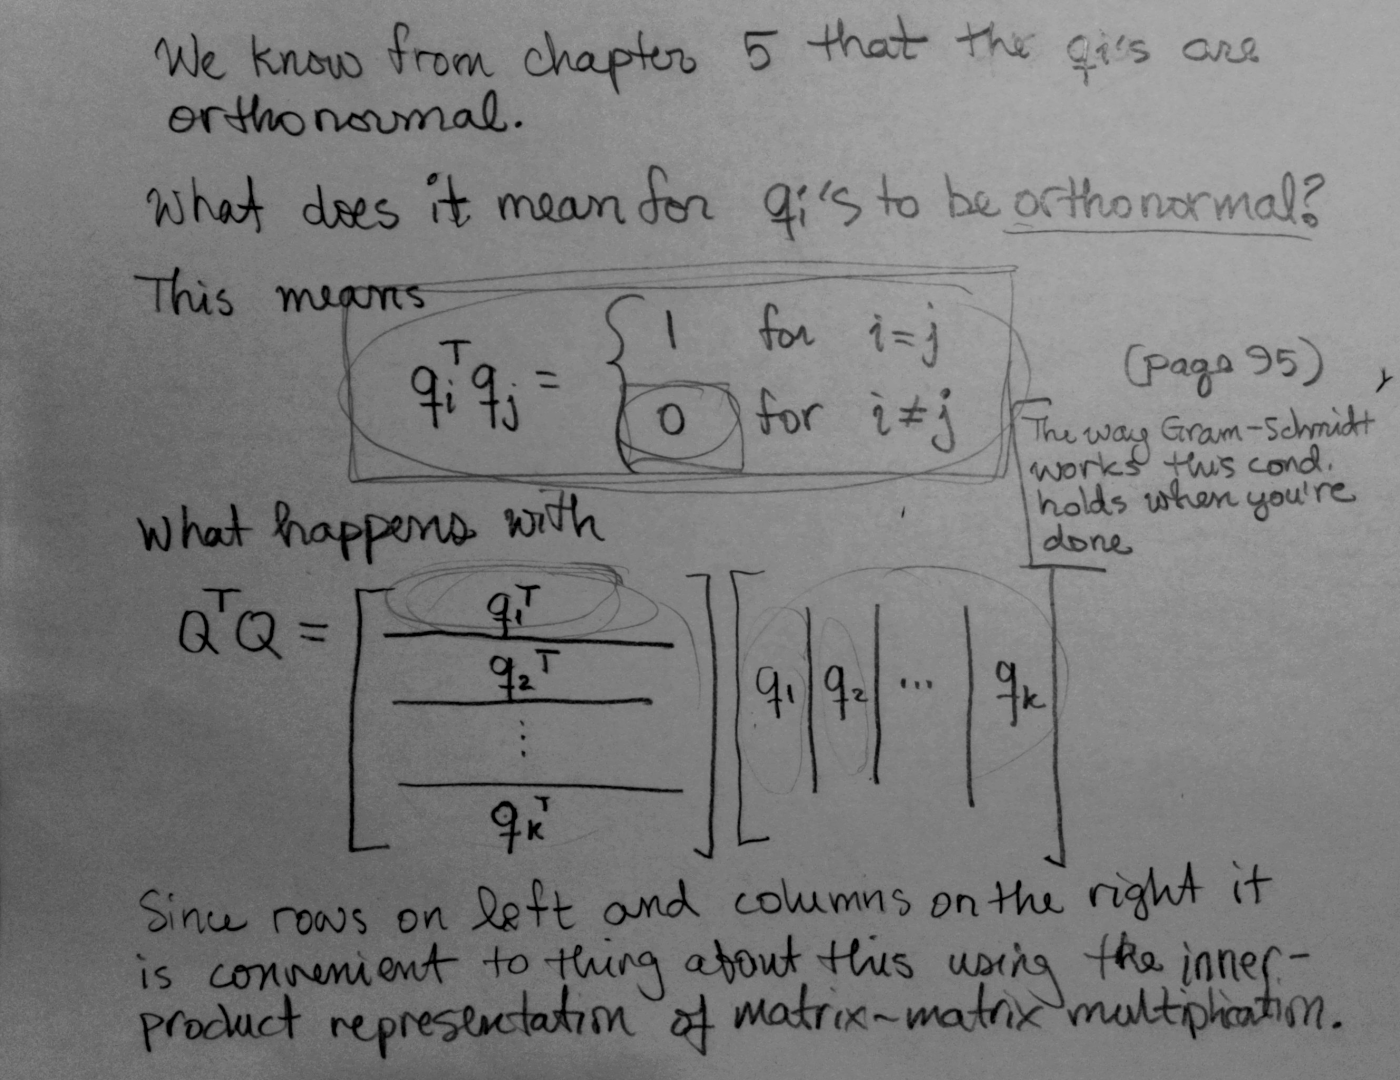 We know from chapter 5 that the qi's are
orthonormal.
What does it mean for qi's to be orthonormal?
This means
qiᵀqj = { 1 for i=j
0 for i≠j
(page 95)
The way Gram-Schmidt
works this cond.
holds when you're
done
What happens with
QᵀQ = [ q₁ᵀ
q₂ᵀ
⋮
qₖᵀ ] [ q₁ | q₂ | ... | qₖ ]
Since rows on left and columns on the right it
is convenient to thing about this using the inner-
product representation of matrix-matrix multiplication.